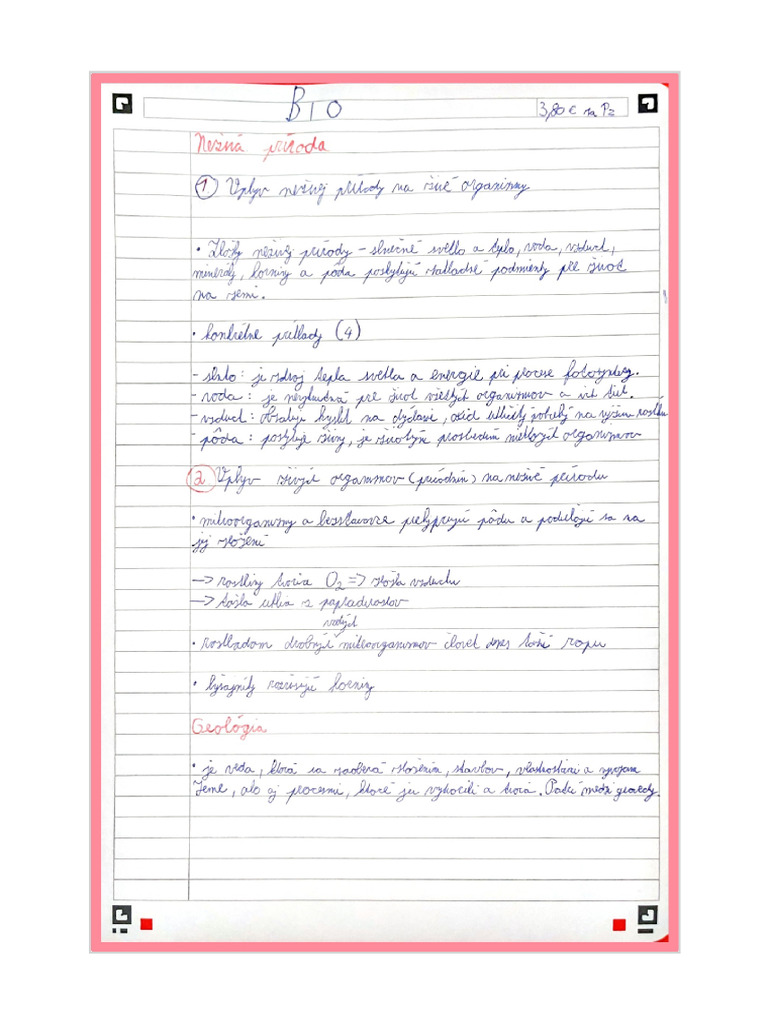 BIO
3,80 € na PZ
Neživá príroda
1 Vplyv neživej prírody na živé organizmy
• Zložky neživej prírody - slnečné svetlo a teplo, voda, vzduch,
minerály, horniny a pôda poskytujú základné podmienky pre život
na zemi.
• konkrétne príklady (4)
- slnko: je zdroj tepla svetla a energie pri procese fotosyntézy.
- voda: je nevyhnutná pre život všetkých organizmov a ich tiel.
- vzduch: obsahuje kyslík na dýchanie, oxid uhličitý potrebný na výživu rastlín
- pôda: poskytuje živiny, je životným prostredím niektorých organizmov
2 Vplyv živých organizmov (prírodnín) na neživú prírodu
• mikroorganizmy a bezstavovce prekyprujú pôdu a podieľajú sa na
jej zložení
-> rastliny tvoria O2 => zložka vzduchu
-> ložiská uhlia z papraďorastov
vodných
• rozkladom drobných mikroorganizmov človek dnes ťaží ropu
• lyšajníky rozrušujú horniny
Geológia
• je veda, ktorá sa zaoberá zložením, stavbou, vlastnosťami a vývojom
Zeme, ako aj procesmi, ktoré ju vytvorili a tvoria. Patrí medzi geovedy.